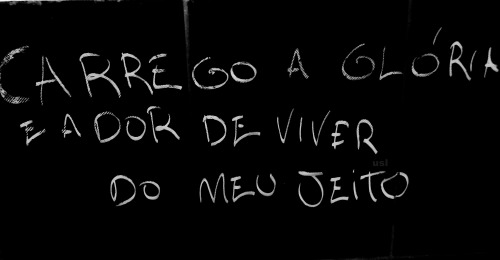 CARREGO A GLÓRIA
E A DOR DE VIVER
DO MEU JEITO